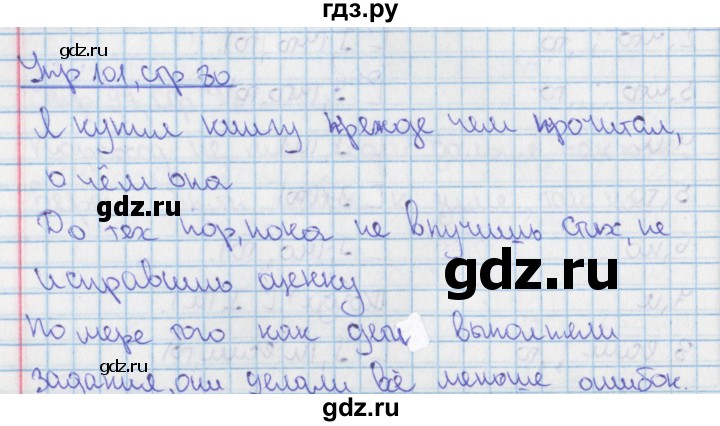 гдз.ру
gdz.ru
Упр 101, стр 80
Я купил книгу прежде чем прочитал,
о чём она
gdz.ru
До тех пор, пока не выучишь стих, не
исправишь оценку
gdz.ru
По мере того как дети выполняли
gdz.ru
задания, они делали всё меньше ошибок.
gdz.ru